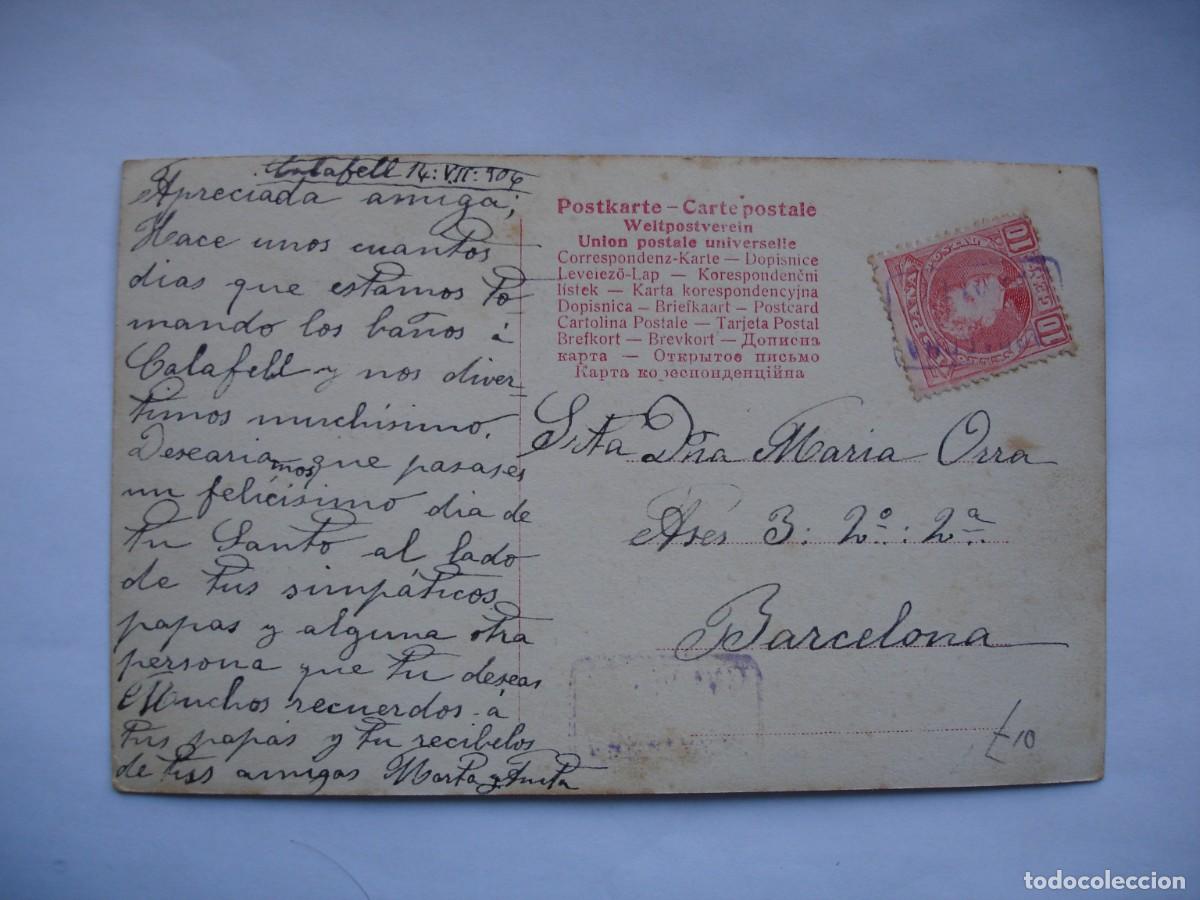 Calafell 14:VII:906
Apreciada amiga;
Hace unos cuantos
dias que estamos to-
mando los baños á
Calafell y nos diver-
timos muchísimo.
Deseariamos que pasases
un felicísimo dia de
tu Santo al lado
de tus simpáticos
papas y alguna otra
persona que tu deseas
Muchos recuerdos á
tus papás y tu recibelos
de tus amigas Marta y Anita
Postkarte – Carte postale
Weltpostverein
Union postale universelle
Correspondenz-Karte — Dopisnice
Levelező-Lap — Korespondenční
lístek — Karta korespondencyjna
Dopisnica — Briefkaart — Postcard
Cartolina Postale — Tarjeta Postal
Brefkort — Brevkort — Дописна
карта — Открытое письмо
Карта кореспонденційна
ESPAÑA
10
10
Srta Dña Maria Orra
3: 2º: 2ª
Barcelona
t10
todocoleccion